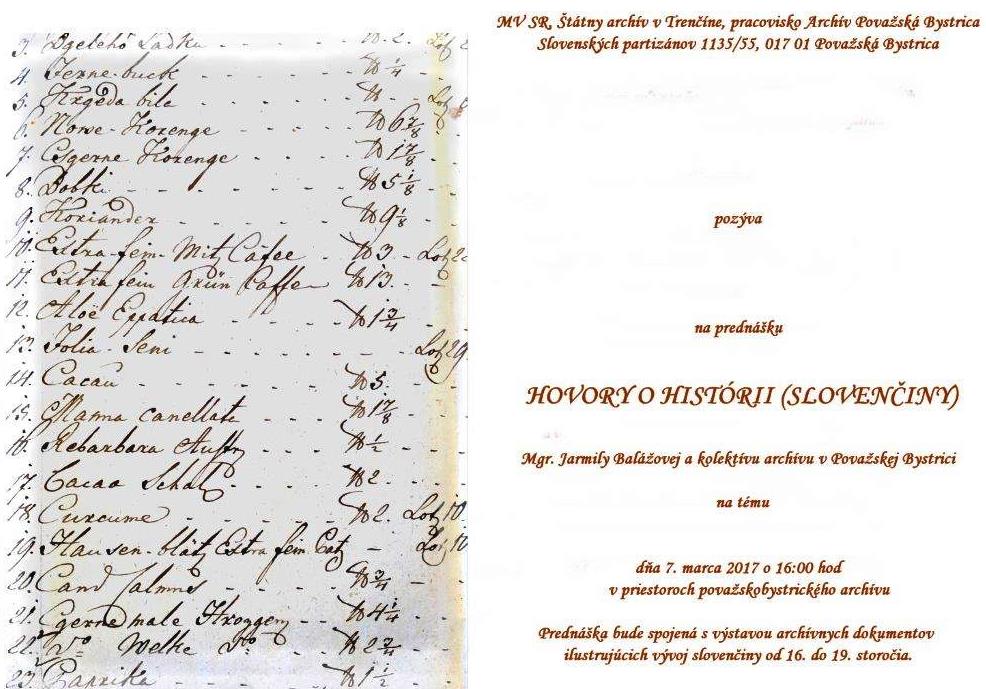 4. Ferne-buck - - - - - ℔ 1/4
5. Krgeda bila - - - - - ℔ - -
6. Nowe-Korenge - - - - ℔ 6 7/8
7. Czerne Korenge - - - - ℔ 1 7/8
8. Bobki - - - - - ℔ 5 1/8
9. Koriander - - - - ℔ 9 1/8
10. Extra-fein-Mitz Cafee - ℔ 3. - Lot
11. Extra fein Grün Caffee ℔ 13. -
12. Aloë Eppatica - - - ℔ 1 3/4
13. Folia-Seni - - - - - Lot 29
14. Cacau - - - - - ℔ 5
15. Manna canellata - - - ℔ 1 7/8
16. Rebarbara - - - ℔ 1/2
17. Cacao Schal - - - ℔ 2
18. Curcume - - - - ℔ 2. Lot 10
19. Hausen-blätz Extra fein - Lot 10
20. Cand - - - - ℔ 3/4
21. Czerne male - - ℔ 4 1/4
22. Dto Welke Dto - - ℔ 2 3/4
23. Paprika - - - ℔ 1 1/2
MV SR, Štátny archív v Trenčíne, pracovisko Archív Považská Bystrica
Slovenských partizánov 1135/55, 017 01 Považská Bystrica
pozýva
na prednášku
HOVORY O HISTÓRII (SLOVENČINY)
Mgr. Jarmily Balážovej a kolektívu archívu v Považskej Bystrici
na tému
dňa 7. marca 2017 o 16:00 hod
v priestoroch považskobystrického archívu
Prednáška bude spojená s výstavou archívnych dokumentov
ilustrujúcich vývoj slovenčiny od 16. do 19. storočia.